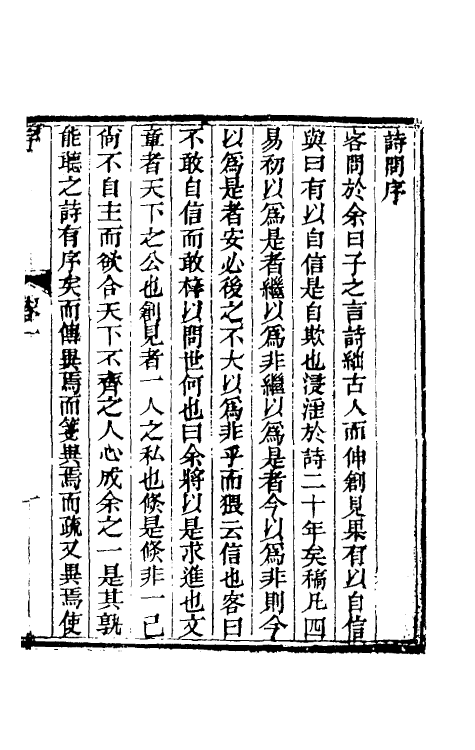 詩問序
客問於余曰子之言詩絀古人而伸創見果有以自信
與曰有以自信是自欺也浸淫於詩二十年矣稿凡四
易初以爲是者繼以爲非繼以爲是者今以爲非則今
以爲是者安必後之不大以爲非乎而猥云信也客曰
不敢自信而敢梓以問世何也曰余將以是求進也文
章者天下之公也創見者一人之私也倐是倐非一己
尙不自主而欲合天下不齊之人心成余之一是其孰
能聽之詩有序矣而傳異焉而箋異焉而疏又異焉使
序
卷一
一